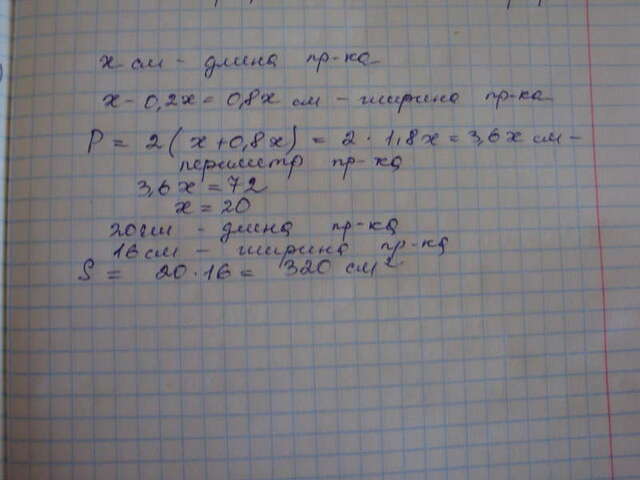 х см - длина пр-ка
х - 0,2х = 0,8х см - ширина пр-ка
P = 2(х+0,8х) = 2·1,8х = 3,6х см -
периметр пр-ка
3,6х = 72
х = 20
20см - длина пр-ка
16см - ширина пр-ка
S = 20·16 = 320 см²